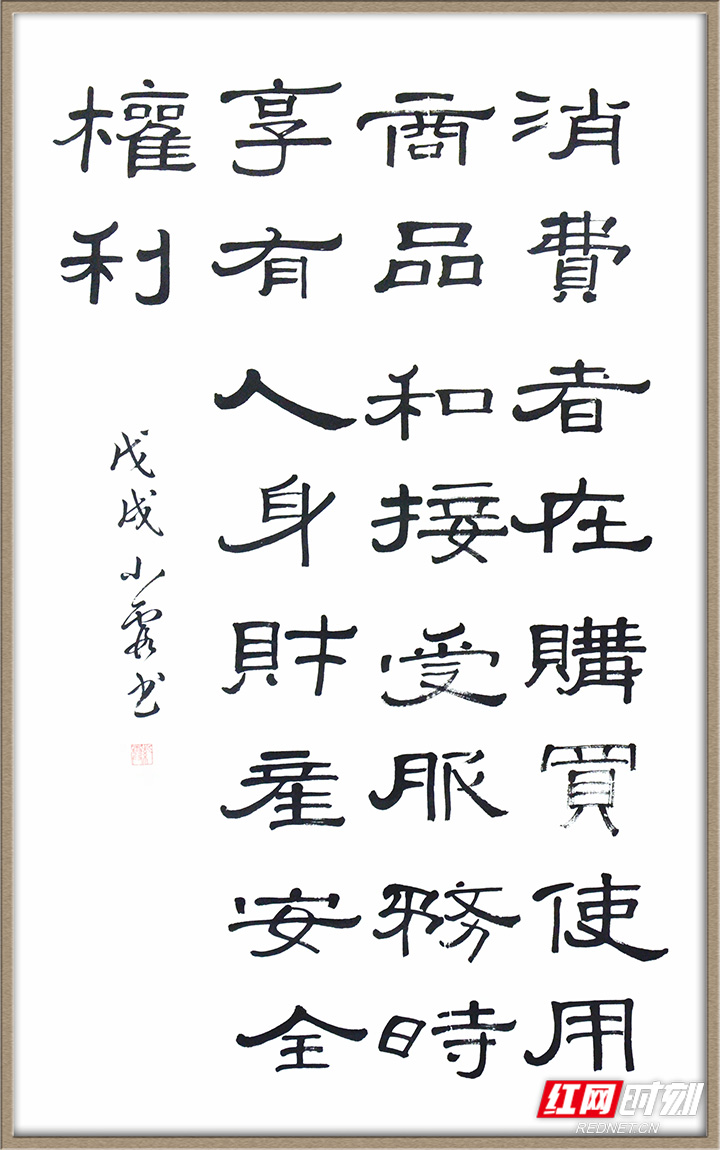 消費者在購買使用
商品和接受服務時
享有人身財產安全
權利
戊戌小霞书
红网时刻
REDNET.CN